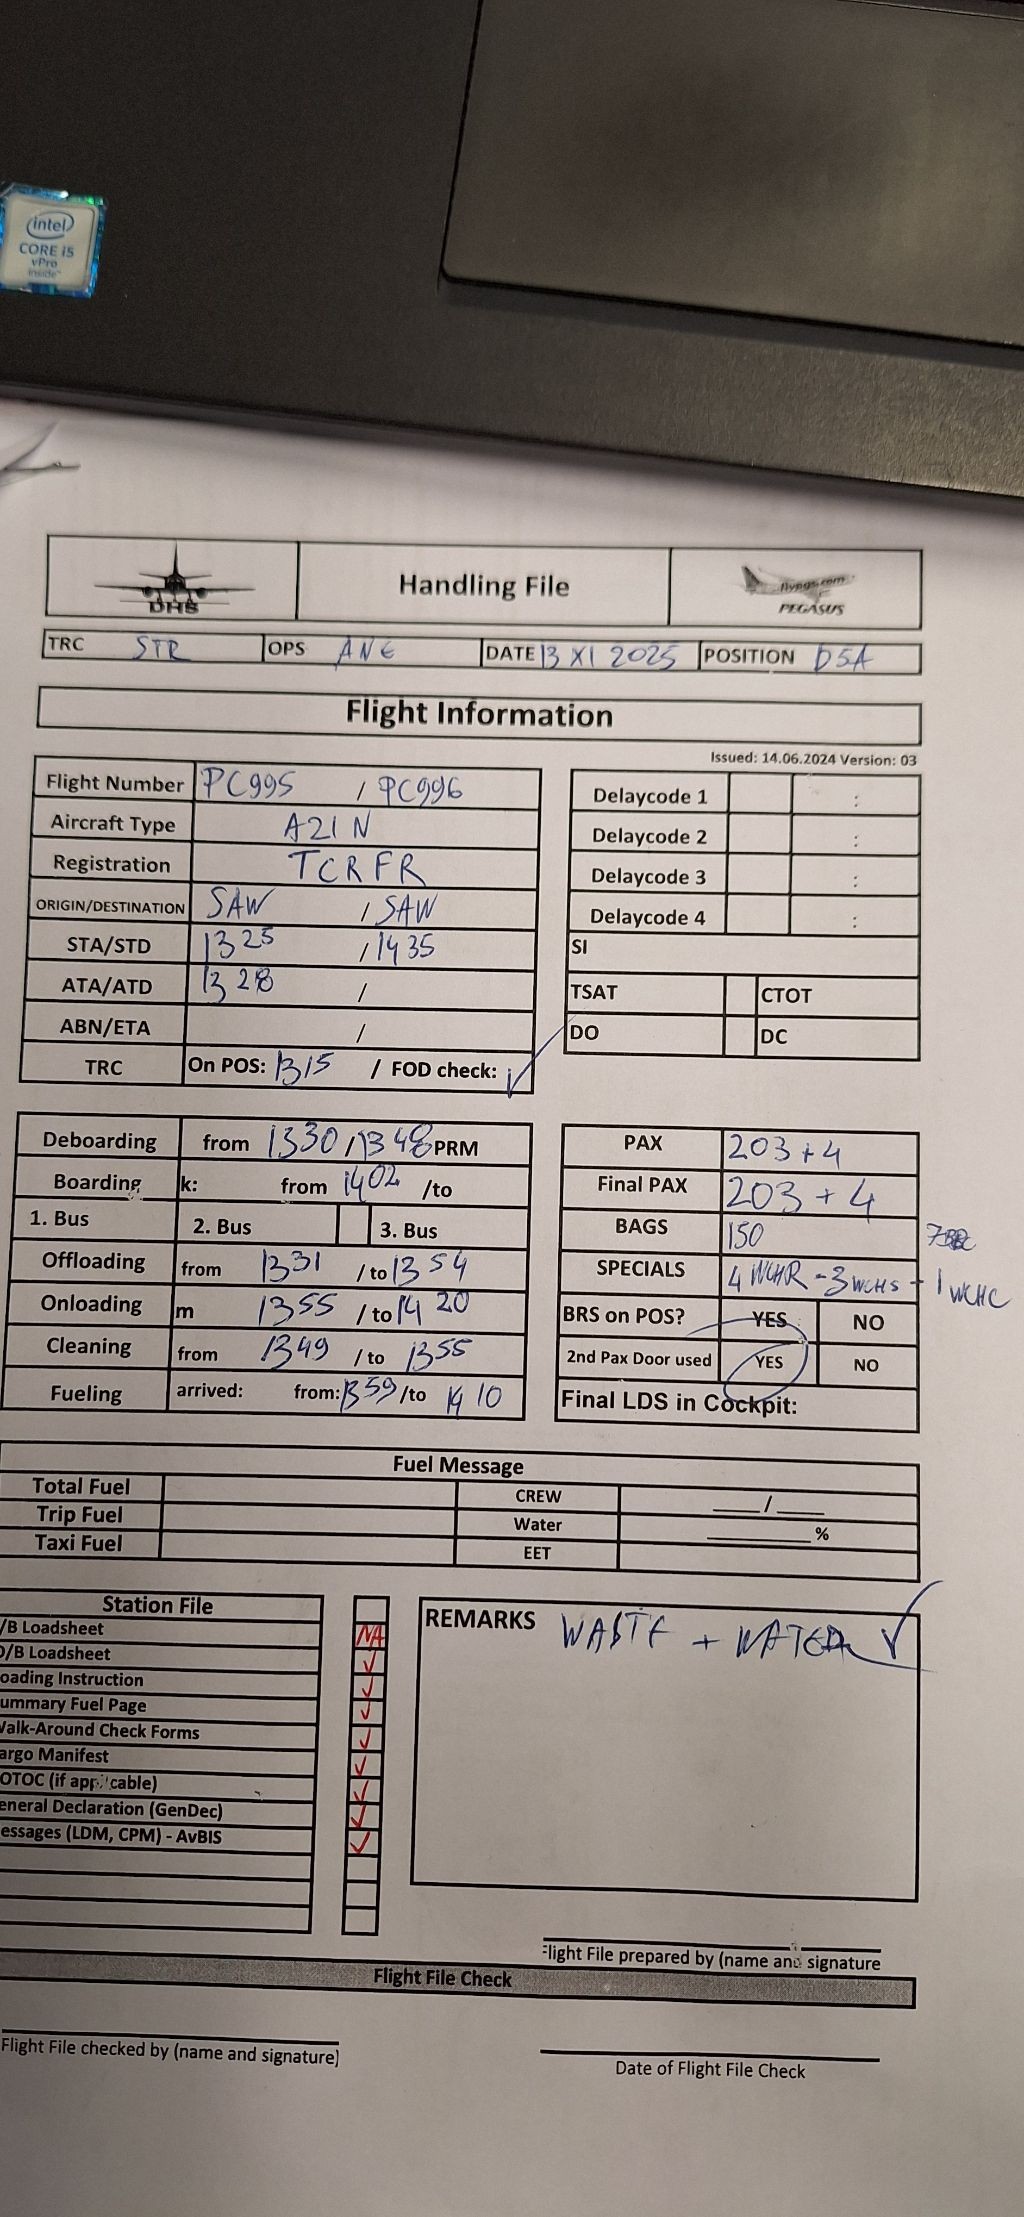 intel
CORE i5
vPro
inside™
DHS
Handling File
flypgs.com
PEGASUS
TRC STR OPS ANE DATE 13 XI 2025 POSITION D5A
Flight Information
Issued: 14.06.2024 Version: 03
Flight Number PC995 / PC996
Aircraft Type A21N
Registration TCRFR
ORIGIN/DESTINATION SAW / SAW
STA/STD 1325 / 1435
ATA/ATD 1328 /
ABN/ETA /
TRC On POS: 1315 / FOD check: ✓
Delaycode 1 :
Delaycode 2 :
Delaycode 3 :
Delaycode 4 :
SI
TSAT CTOT
DO DC
Deboarding from 1330 / 1348 PRM
Boarding k: from 1402 /to
1. Bus 2. Bus 3. Bus
Offloading from 1331 / to 1354
Onloading m 1355 / to 1420
Cleaning from 1349 / to 1355
Fueling arrived: from: 1359 /to 1410
PAX 203 + 4
Final PAX 203 + 4
BAGS 150
SPECIALS 4 WCHR - 3 WCHS + 1 WCHC
BRS on POS? YES NO
2nd Pax Door used YES NO
Final LDS in Cockpit:
Fuel Message
Total Fuel CREW ____/____
Trip Fuel Water ________%
Taxi Fuel EET
Station File
/B Loadsheet NA
O/B Loadsheet ✓
oading Instruction ✓
ummary Fuel Page ✓
Walk-Around Check Forms ✓
argo Manifest ✓
OTOC (if applicable) ✓
eneral Declaration (GenDec) ✓
essages (LDM, CPM) - AvBIS ✓
REMARKS WASTE + WATER ✓
Flight File prepared by (name and signature
Flight File Check
Flight File checked by (name and signature)
Date of Flight File Check